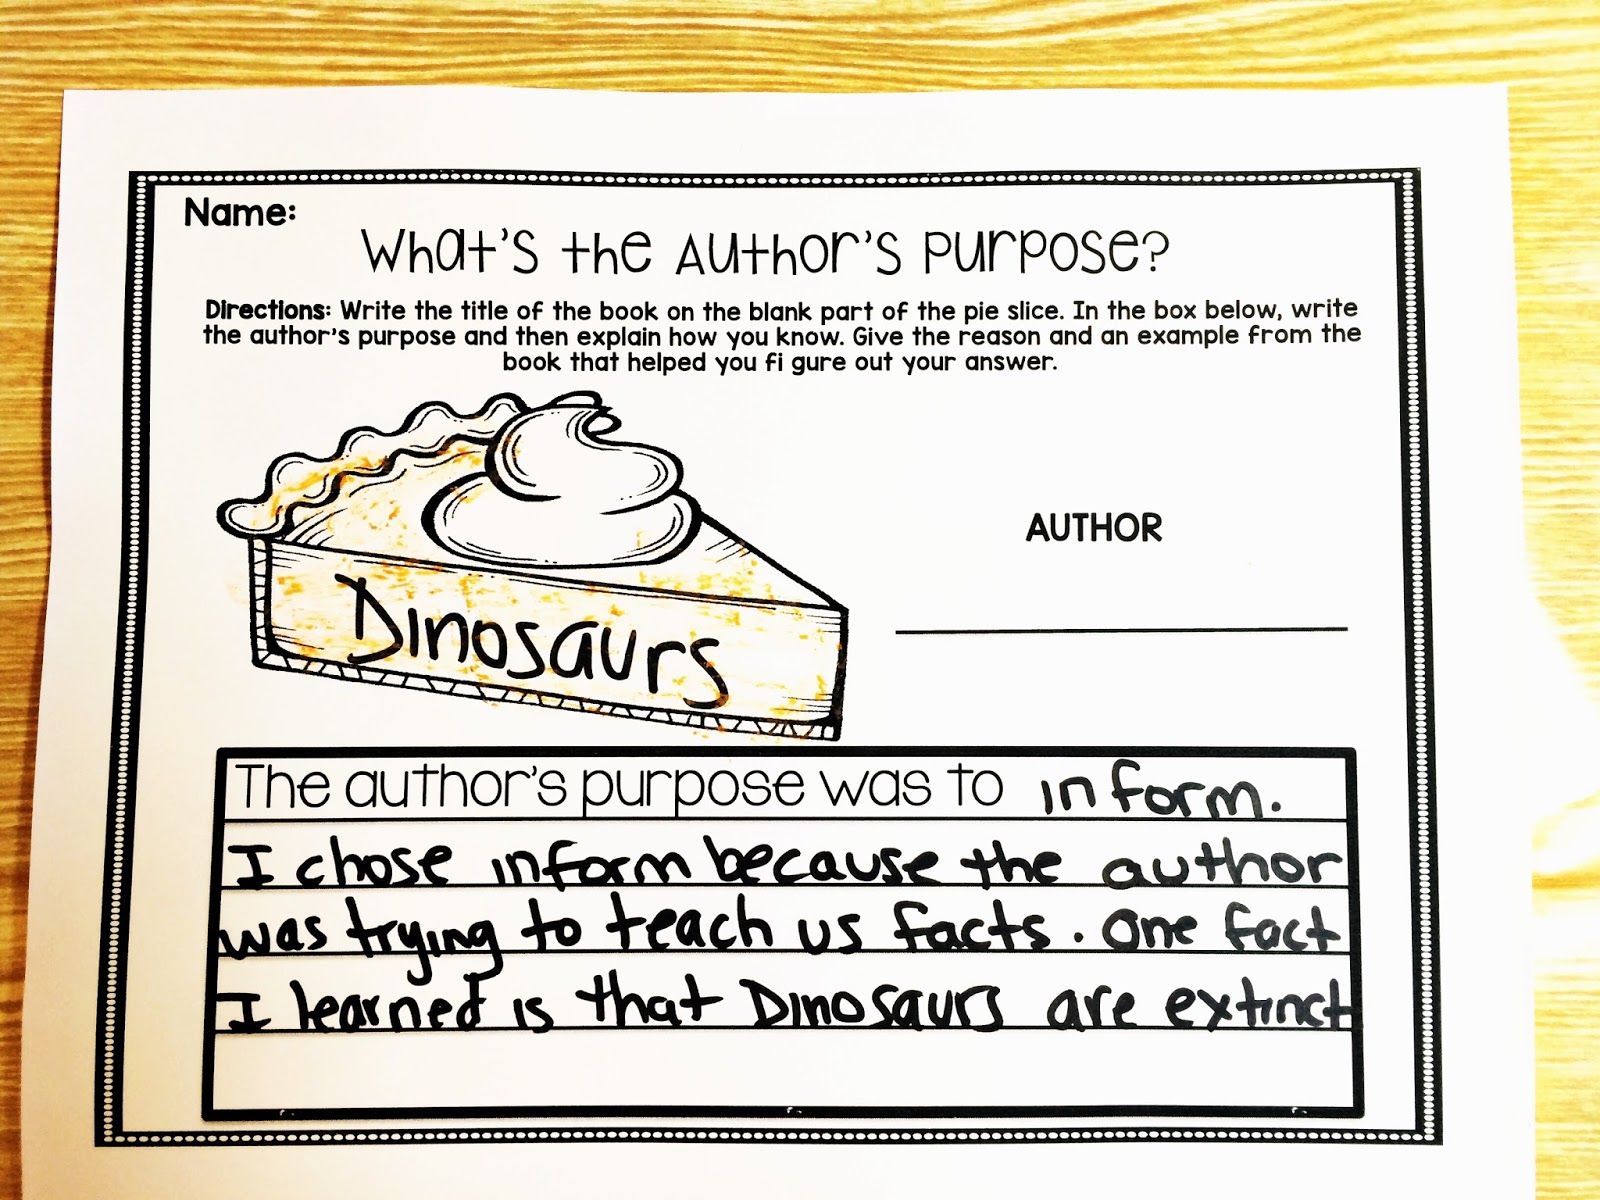 Name:
What's the Author's Purpose?
Directions: Write the title of the book on the blank part of the pie slice. In the box below, write
the author's purpose and then explain how you know. Give the reason and an example from the
book that helped you fi gure out your answer.
AUTHOR
Dinosaurs
The author's purpose was to inform.
I chose inform because the author
was trying to teach us facts. One fact
I learned is that Dinosaurs are extinct